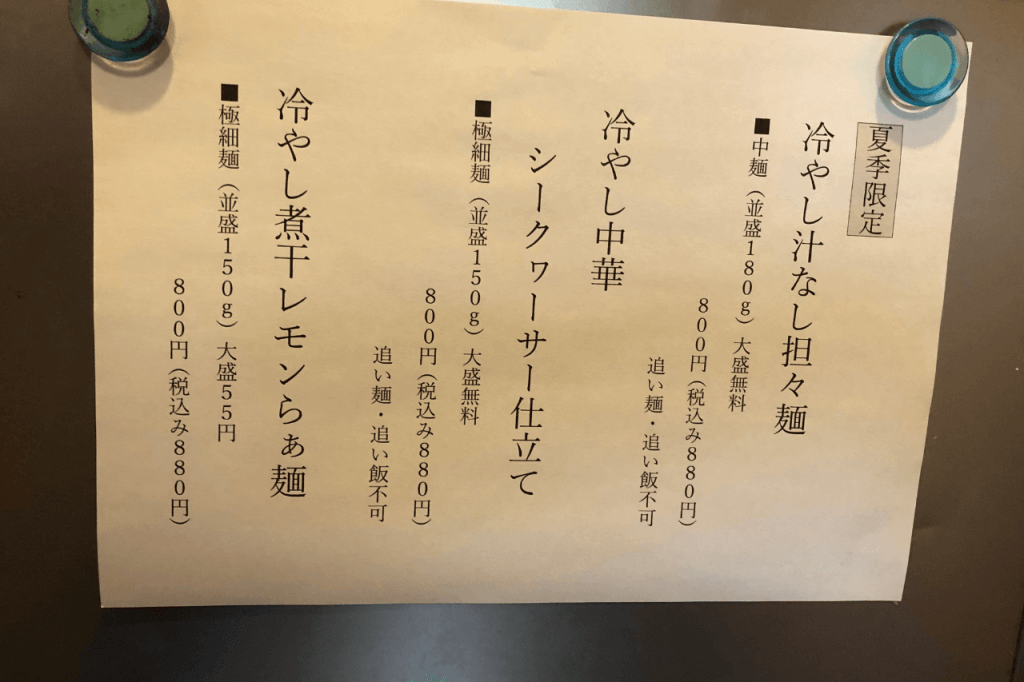 夏季限定
冷やし汁なし担々麺
■中麺（並盛１８０ｇ）大盛無料
８００円（税込み８８０円）
追い麺・追い飯不可
冷やし中華
シークヮーサー仕立て
■極細麺（並盛１５０ｇ）大盛無料
８００円（税込み８８０円）
追い麺・追い飯不可
冷やし煮干レモンらぁ麺
■極細麺（並盛１５０ｇ）大盛５５円
８００円（税込み８８０円）